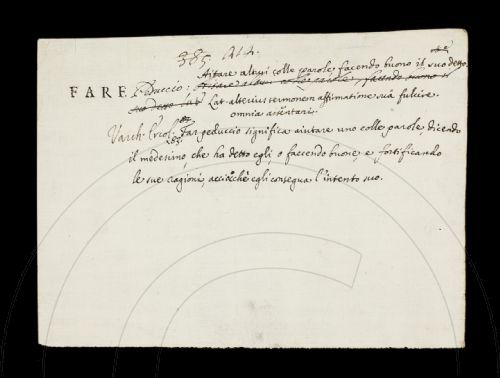 385.
Aitare altrui colle parole facendo buono il suo detto.
FARE. Peduccio: Aitare altrui colle parole, facendo buono il
suo detto. Lat. alterius sermonem affirmatione suâ fulcire
omnia assentari.
Varch. Ercol. Far peduccio significa aiutare uno colle parole dicendo
il medesimo, che ha detto egli, o facendo buone, e fortificando
le sue ragioni, acciocchè egli consegua l'intento suo.